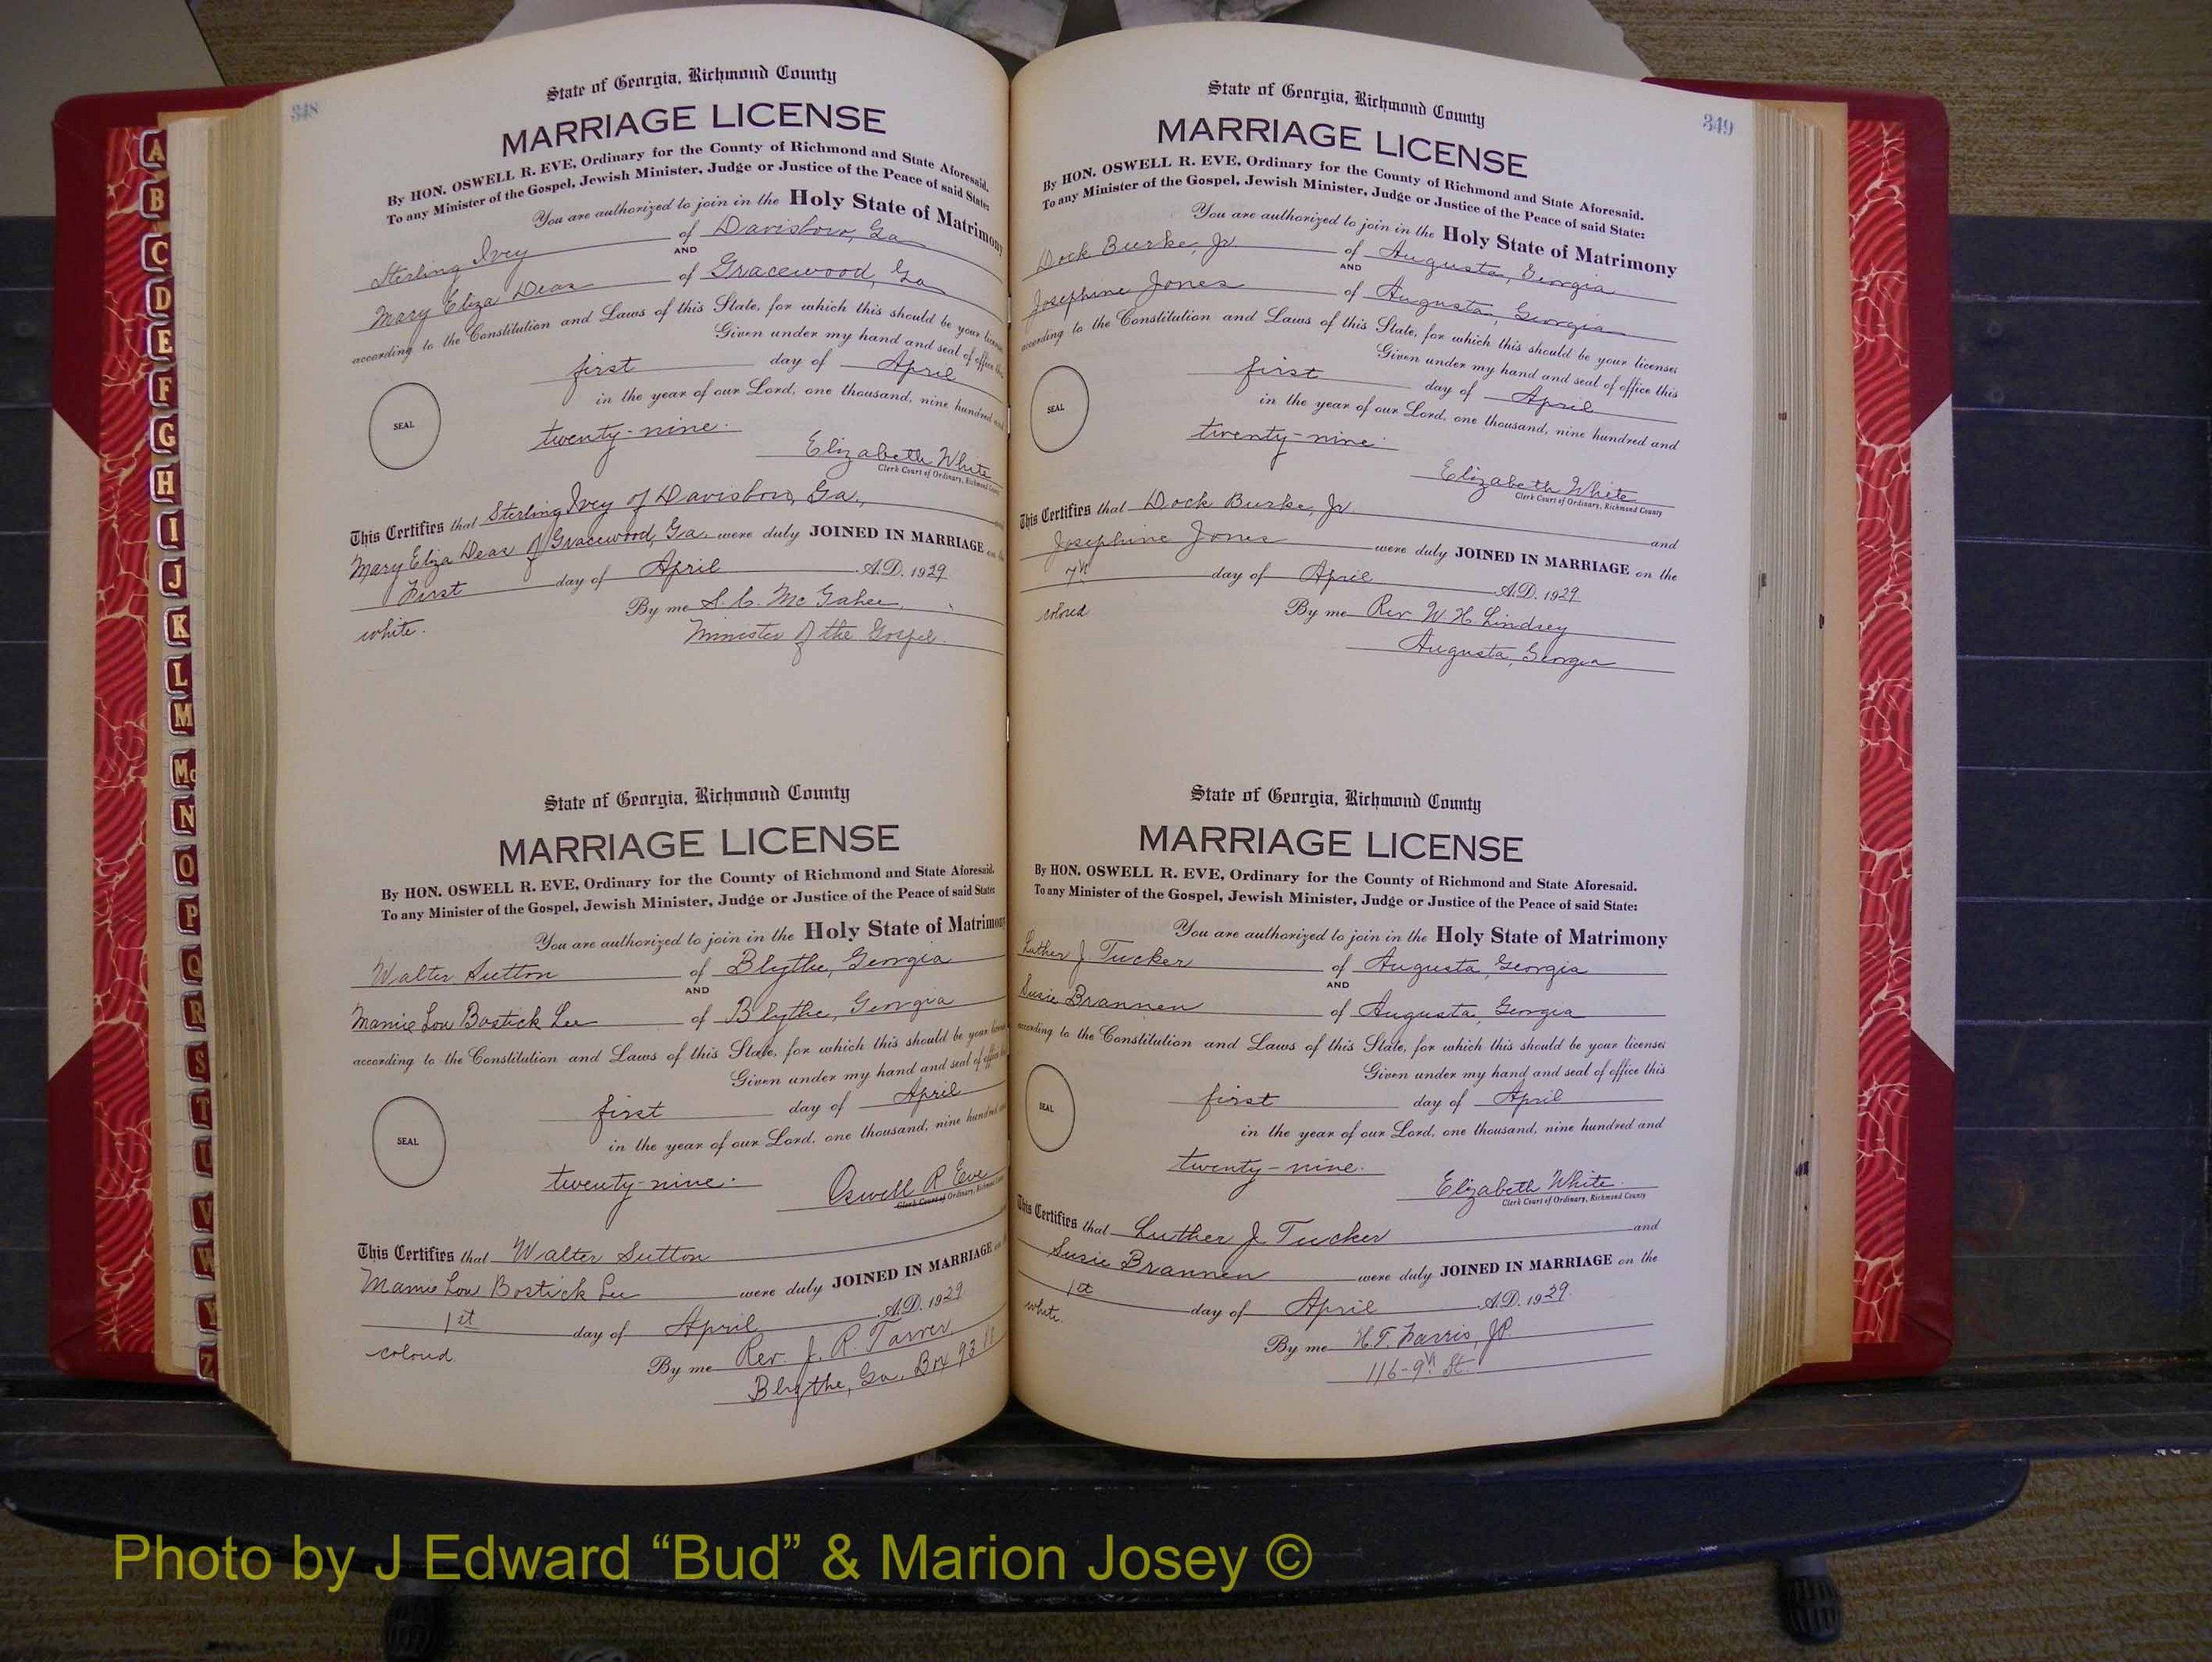 348
State of Georgia, Richmond County
MARRIAGE LICENSE
By HON. OSWELL R. EVE, Ordinary for the County of Richmond and State Aforesaid.
To any Minister of the Gospel, Jewish Minister, Judge or Justice of the Peace of said State:
You are authorized to join in the Holy State of Matrimony
Sterling Ivey of Davisboro, Ga
AND
Mary Eliza Deas of Gracewood, Ga
according to the Constitution and Laws of this State, for which this should be your license
Given under my hand and seal of office this
first day of April
in the year of our Lord, one thousand, nine hundred and
SEAL
twenty-nine.
Elizabeth White
Clerk Court of Ordinary, Richmond County
This Certifies that Sterling Ivey of Davisboro, Ga,
Mary Eliza Deas of Gracewood, Ga. were duly JOINED IN MARRIAGE on the
First day of April A.D. 1929
By me S. C. McGahee,
white. Minister of the Gospel.
State of Georgia, Richmond County
MARRIAGE LICENSE
By HON. OSWELL R. EVE, Ordinary for the County of Richmond and State Aforesaid.
To any Minister of the Gospel, Jewish Minister, Judge or Justice of the Peace of said State:
You are authorized to join in the Holy State of Matrimony
Walter Sutton of Blythe, Georgia
AND
Mamie Lou Bostick Lee of Blythe, Georgia
according to the Constitution and Laws of this State, for which this should be your license
Given under my hand and seal of office this
first day of April
in the year of our Lord, one thousand, nine hundred and
SEAL
twenty-nine.
Oswell R Eve
Clerk Court of Ordinary, Richmond County
This Certifies that Walter Sutton
Mamie Lou Bostick Lee were duly JOINED IN MARRIAGE on the
1st day of April A.D. 1929
colored By me Rev. J. R. Tarver,
Blythe, Ga. Box 93
349
State of Georgia, Richmond County
MARRIAGE LICENSE
By HON. OSWELL R. EVE, Ordinary for the County of Richmond and State Aforesaid.
To any Minister of the Gospel, Jewish Minister, Judge or Justice of the Peace of said State:
You are authorized to join in the Holy State of Matrimony
Dock Burke, Jr of Augusta, Georgia
AND
Josephine Jones of Augusta, Georgia
according to the Constitution and Laws of this State, for which this should be your license;
Given under my hand and seal of office this
first day of April
in the year of our Lord, one thousand, nine hundred and
SEAL
twenty-nine.
Elizabeth White
Clerk Court of Ordinary, Richmond County
This Certifies that Dock Burke, Jr
and
Josephine Jones were duly JOINED IN MARRIAGE on the
7th day of April A.D. 1929
colored By me Rev. W. H. Lindsey
Augusta, Georgia
State of Georgia, Richmond County
MARRIAGE LICENSE
By HON. OSWELL R. EVE, Ordinary for the County of Richmond and State Aforesaid.
To any Minister of the Gospel, Jewish Minister, Judge or Justice of the Peace of said State:
You are authorized to join in the Holy State of Matrimony
Luther J. Tucker of Augusta, Georgia
AND
Susie Brannen of Augusta, Georgia
according to the Constitution and Laws of this State, for which this should be your license;
Given under my hand and seal of office this
first day of April
in the year of our Lord, one thousand, nine hundred and
SEAL
twenty-nine.
Elizabeth White.
Clerk Court of Ordinary, Richmond County
This Certifies that Luther J. Tucker and
Susie Brannen were duly JOINED IN MARRIAGE on the
1st day of April A.D. 1929.
white. By me H. T. Harris, JP.
116-9th St.
A
B
C
D
E
F
G
H
I
J
K
L
M
Mc
N
O
P
Q
R
S
T
U
V
W
Y
Z
Photo by J Edward “Bud” & Marion Josey ©